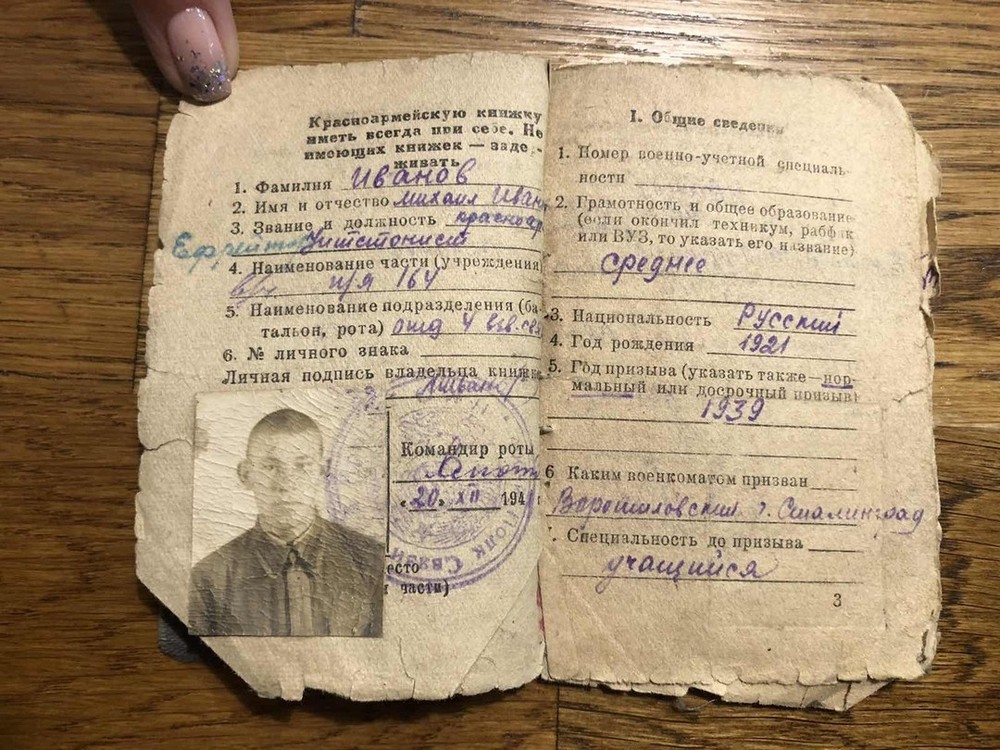 Красноармейскую книжку
иметь всегда при себе. Не
имеющих книжек — заде-
живать
1. Фамилия Иванов
2. Имя и отчество Михаил Иван
3. Звание и должность красноар
Ефрейтор
4. Наименование части (учреждения
п/я 164
5. Наименование подразделения (ба-
тальон, рота) 4
6. № личного знака
Личная подпись владельца книжк
Командир роты
«20» XII 194
Полк Связи
есто
части)
I. Общие сведения
1. Номер военно-учетной специаль-
ности
2. Грамотность и общее образование
(если окончил техникум, рабфак
или ВУЗ, то указать его название)
среднее
3. Национальность Русский
4. Год рождения 1921
5. Год призыва (указать также—нор-
мальный или досрочный призыв)
1939
6 Каким военкоматом призван
Ворошиловский г. Сталинград
Специальность до призыва
учащийся
3